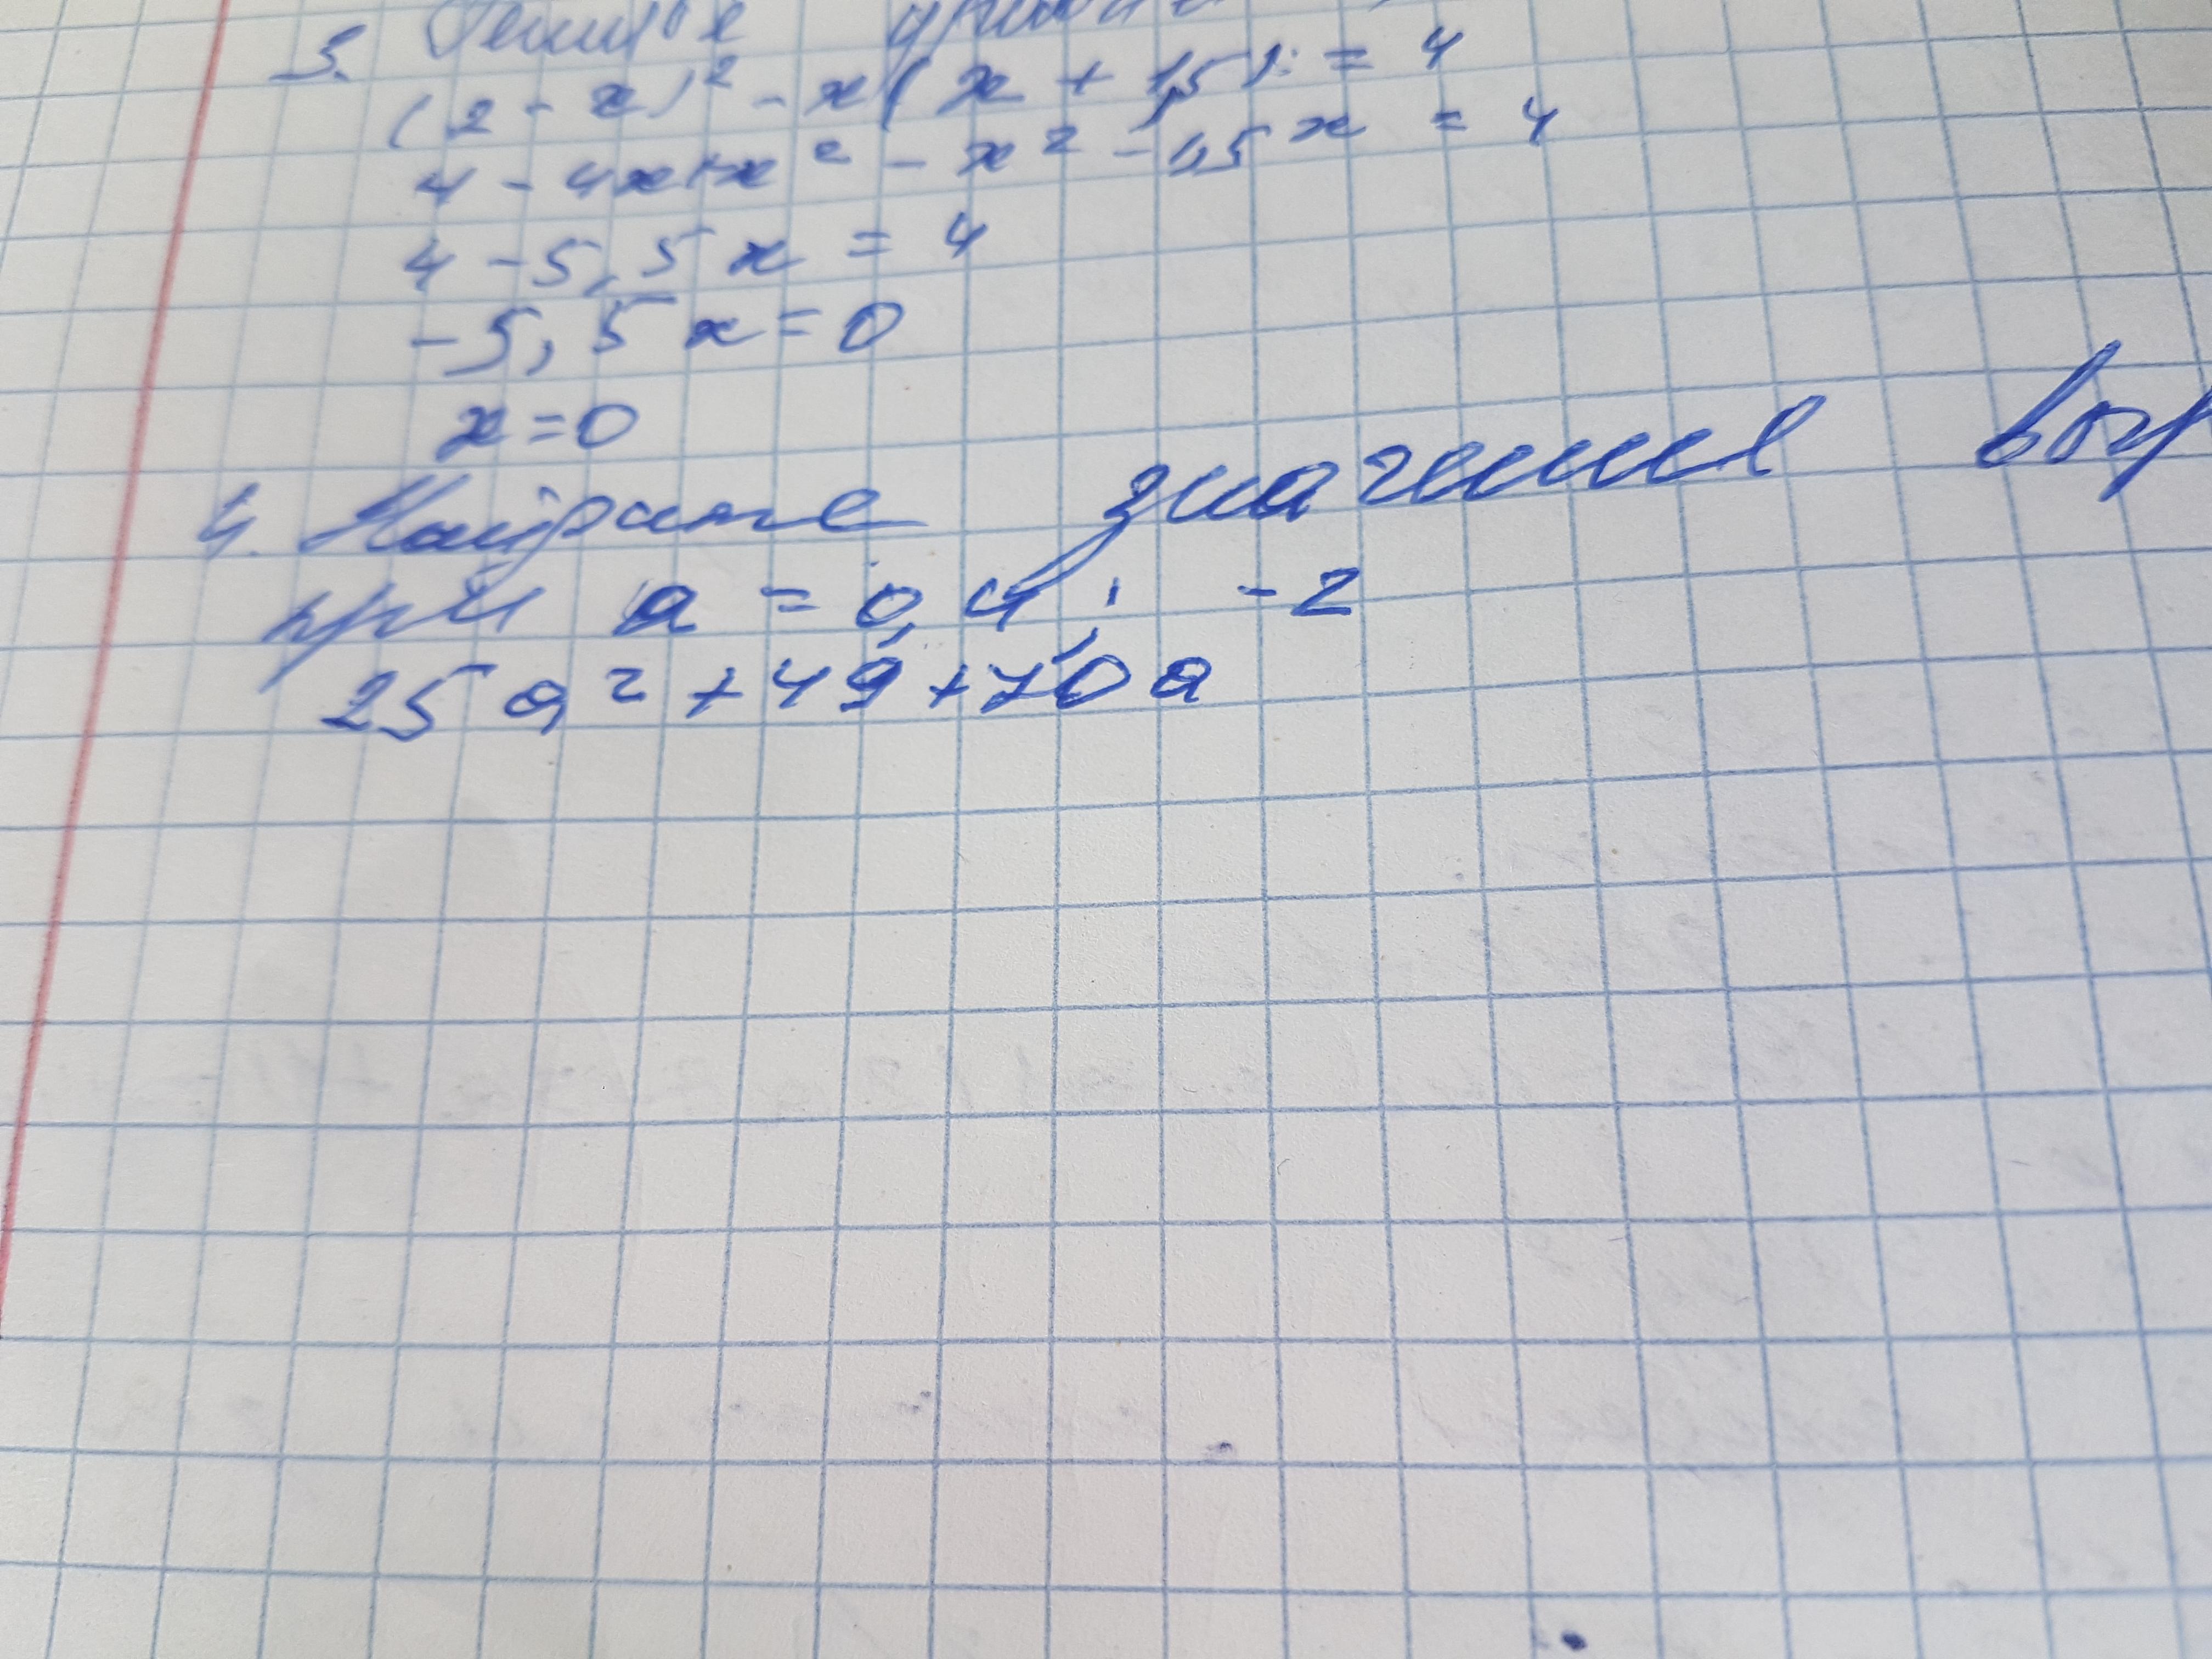 3. Решите
(2 - x)² - x(x + 1,5) = 4
4 - 4x + x² - x² - 1,5x = 4
4 - 5,5x = 4
-5,5x = 0
x = 0
4. Найдите значение выр
при a = 0,4; -2
25a² + 49 + 70a